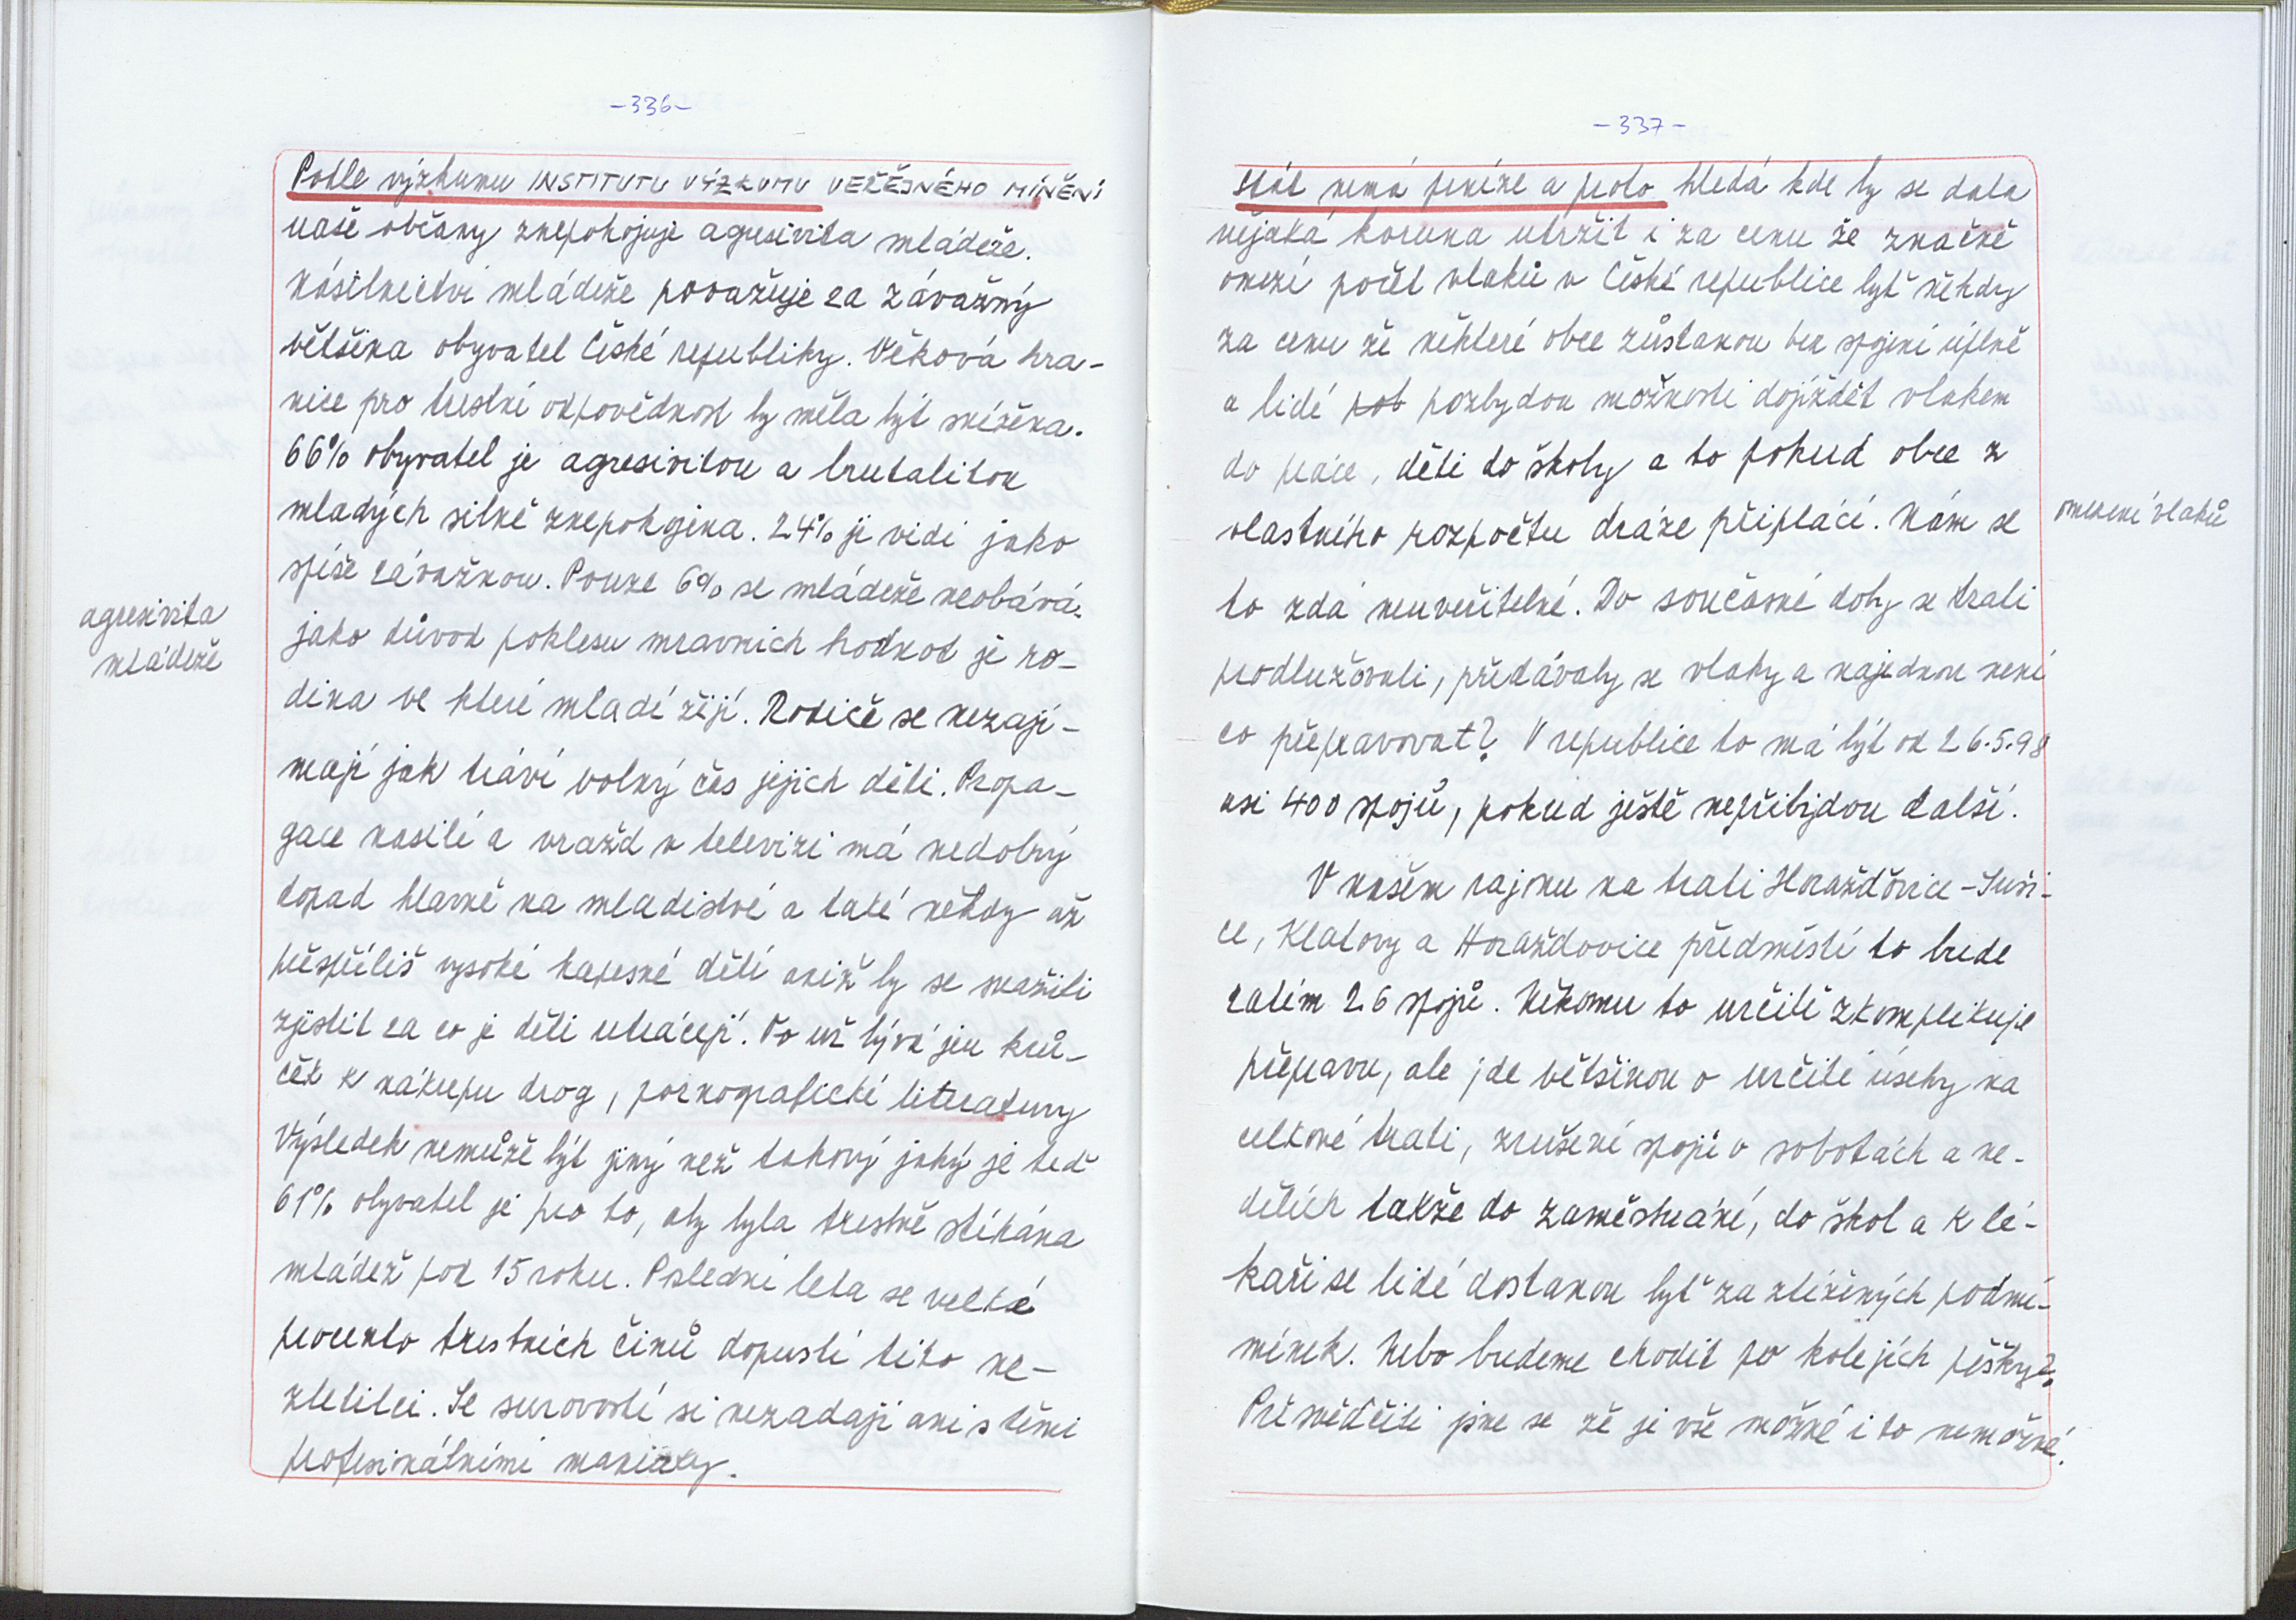 -336-
Podle výzkumu INSTITUTU VÝZKUMU VEŘEJNÉHO MÍNĚNÍ
naše občany znepokojuje agresivita mládeže.
Násilnictví mládeže považuje za závažný
většina obyvatel České republiky. Věková hra-
nice pro trestní odpovědnost by měla být snížena.
66% obyvatel je agresivitou a brutalitou
mladých silně znepokojena. 24% ji vidí jako
spíše závažnou. Pouze 6% se mládeže neobává.
agresivita
mládeže
jako důvod poklesu mravních hodnot je ro-
dina ve které mladí žijí. Rodiče se nezají-
mají jak tráví volný čas jejich děti. Propa-
gace násilí a vražd v televizi má nedobrý
dopad hlavně na mladistvé a také někdy až
přespříliš vysoké kapesné dětí aniž by se snažili
zjistit za co je děti utrácejí. To už bývá jen krů-
ček k nákupu drog, pornografické literatury
Výsledek nemůže být jiný než takový jaký je teď
61% obyvatel je pro to, aby byla trestně stíhána
mládež pod 15 roku. Poslední leta se velké
procento trestních činů dopustí tito ne-
zletilci. Se surovostí si nezadají ani s těmi
profesinálními maniaky.
-337-
Stát nemá peníze a proto hledá kde by se dala
nějaká koruna utržit i za cenu že značně
omezí počet vlaků v České republice byť někdy
za cenu že některé obce zůstanou bez spojení úplně
a lidé pob pozbydou možnosti dojíždět vlakem
do práce, děti do školy a to pokud obce z
vlastního rozpočtu dráze připlácí. Nám se
omezení vlaků
to zdá neuvěřitelné. Do současné doby se trati
prodlužovali, předávaly se vlaky a najednou není
co přepravovat? V republice to má být od 26.5.98
asi 400 spojů, pokud ještě nepřibydou další.
V našem rajonu na trati Horažďovice-Suši-
ce, Klatovy a Horažďovice předměstí to bude
zatím 26 spojů. Někomu to určitě zkomplikuje
přepravu, ale jde většinou o určité úseky na
celkové trati, zrušení spojů v sobotách a ne-
dělích takže do zaměstnání, do škol a k lé-
kaři se lidé dostanou byť za ztížených podmí-
mínek. Nebo budeme chodit po kolejích pěšky?
Přesvědčili jsme se že je vše možné i to nemožné.